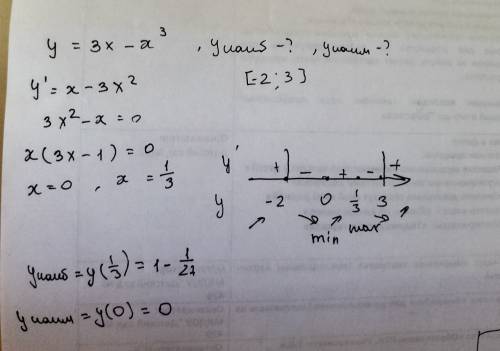 y = 3x - x³ , yнаиб -? , yнаим -?
[-2 ; 3]
y' = x - 3x²
3x² - x = 0
x(3x - 1) = 0
x = 0 , x = 1/3
y' + - + - +
y -2 0 1/3 3
min max
yнаиб = y(1/3) = 1 - 1/27
yнаим = y(0) = 0